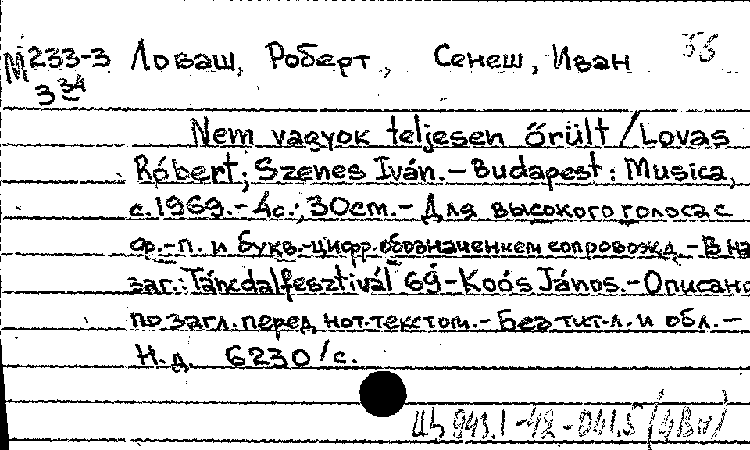 М 233-3 Ловаш, Роберт, Сенеш, Иван 33
3 34
Nem vagyok teljesen őrült / Lovas
Róbert; Szenes Iván. – Budapest: Musica,
с. 1969. – 4с.; 30cm. – Для высокого голоса с
ф.-п. и букв.-цифр. обозначением сопровожд. – В на
заг.: Táncdalfesztivál 69 – Koós János. – Описано
по загл. перед нот. текстом. – Без тит. л. и обл. –
Н.д. 6230/с.
Цъ 943.1-42-041.5 (4Ви)